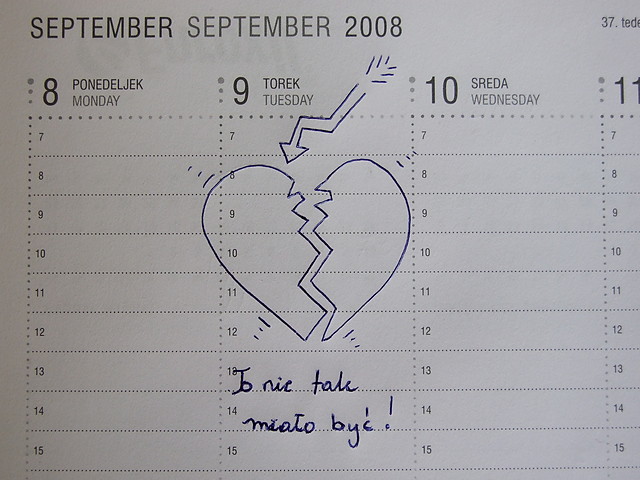 SEPTEMBER SEPTEMBER 2008
37. tede
8 PONEDELJEK
MONDAY
9 TOREK
TUESDAY
10 SREDA
WEDNESDAY
11
7 7 7 7
8 8 8 8
9 9 9 9
10 10 10 10
11 11 11 11
12 12 12 12
13 13 13 13
To nie tak
14 14 14 14
miało być!
15 15 15